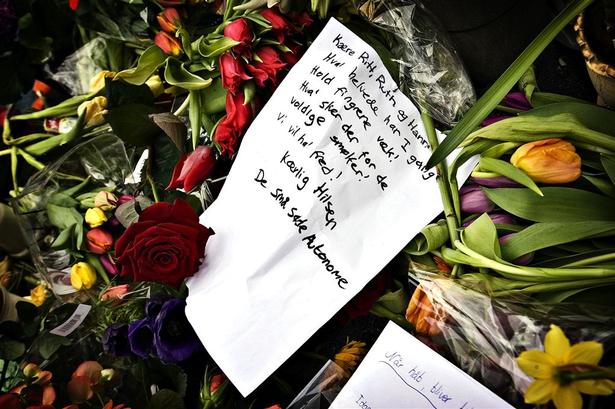 Kære Ritt, Ruth og Hanne
Hva' helvede har I gang
Hold fingrene væk!
Hva' sker der for de
voldige smølker!
Vi vil ha' fred!
Kærlig Hilsen
De små søde Autonome
Når håb, bliver